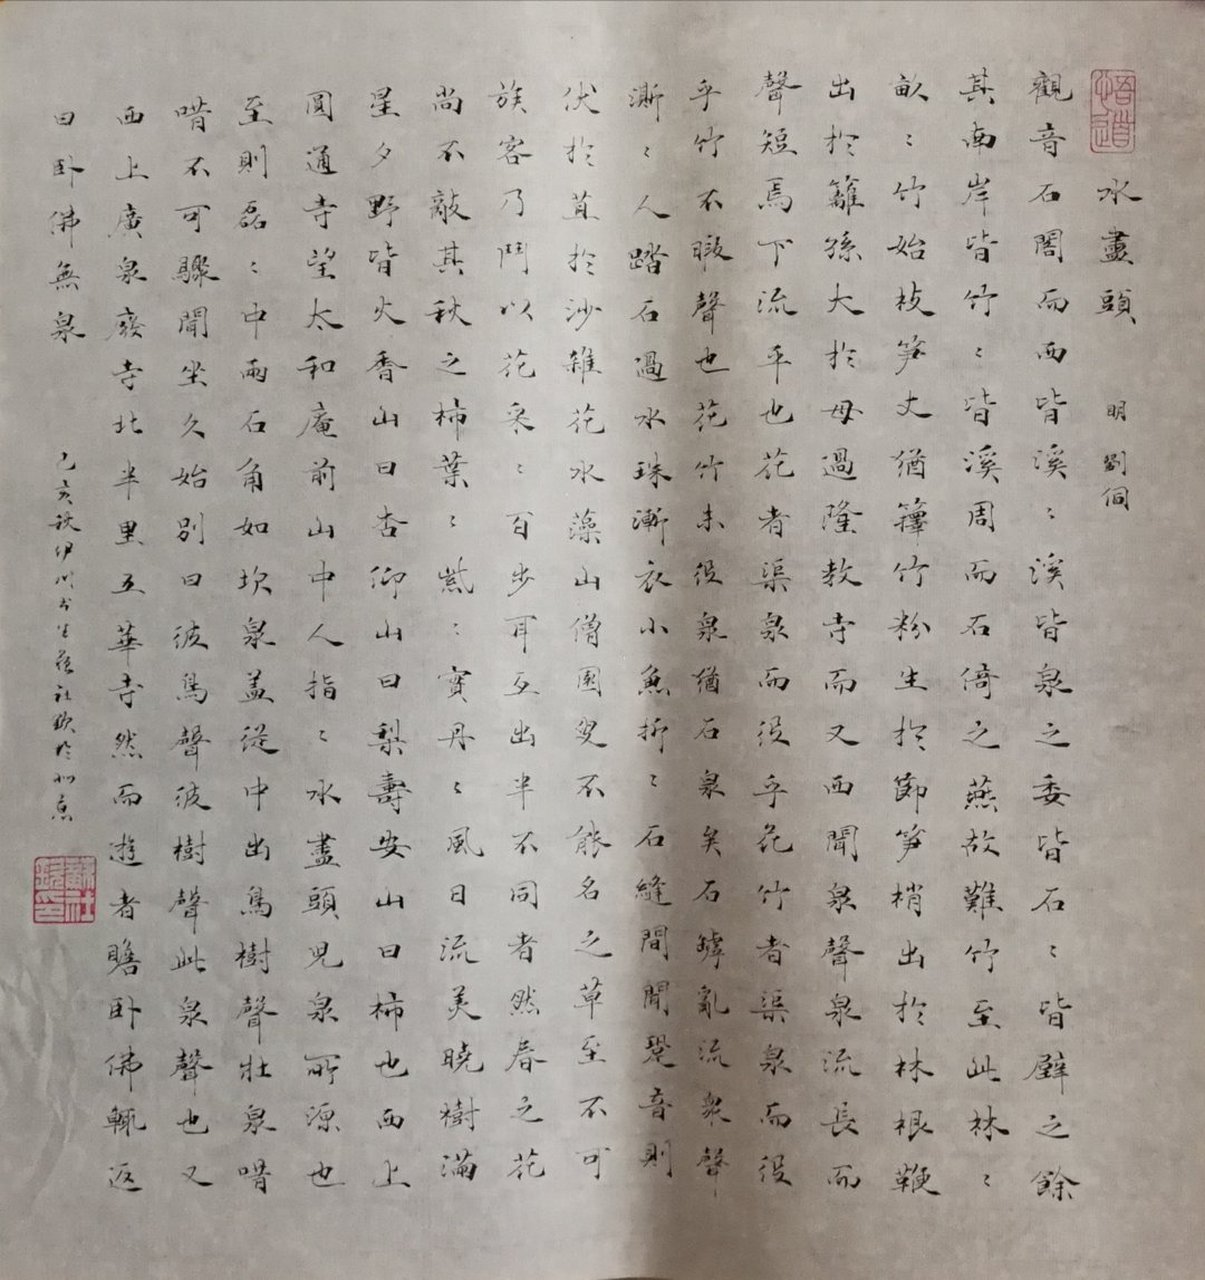 悟道
水盡頭 明 劉侗
觀音石閣而西皆溪〻溪皆泉之委皆石〻皆壁之餘
其南岸皆竹〻皆溪周而石倚之燕故難竹至此林〻
畝〻竹始枝笋丈猶籜竹粉生於節笋梢出於林根鞭
出於籬孫大於母過隆教寺而又西聞泉聲泉流長而
聲短焉下流平也花者渠泉而役乎花竹者渠泉而役
乎竹不暇聲也花竹未役泉猶石泉矣石罅亂流衆聲
澌〻人踏石過水珠漸衣小魚折〻石縫間聞跫音則
伏於苴於沙雜花水藻山僧園叟不能名之草至不可
族客乃鬥以花采〻百步耳互出半不同者然春之花
尚不敵其秋之柿葉〻紫〻實丹〻風日流美曉樹滿
星夕野皆火香山曰杏仰山曰梨壽安山曰柿也西上
圓通寺望太和庵前山中人指〻水盡頭兒泉所源也
至則磊〻中兩石角如坎泉盖從中出鳥樹聲壯泉唶
唶不可驟聞坐久始别曰彼鳥聲彼樹聲此泉聲也又
西上廣泉廢寺北半里五華寺然而遊者瞻卧佛輒返
曰卧佛無泉
己亥秋伊川書生蘇社欽於北京